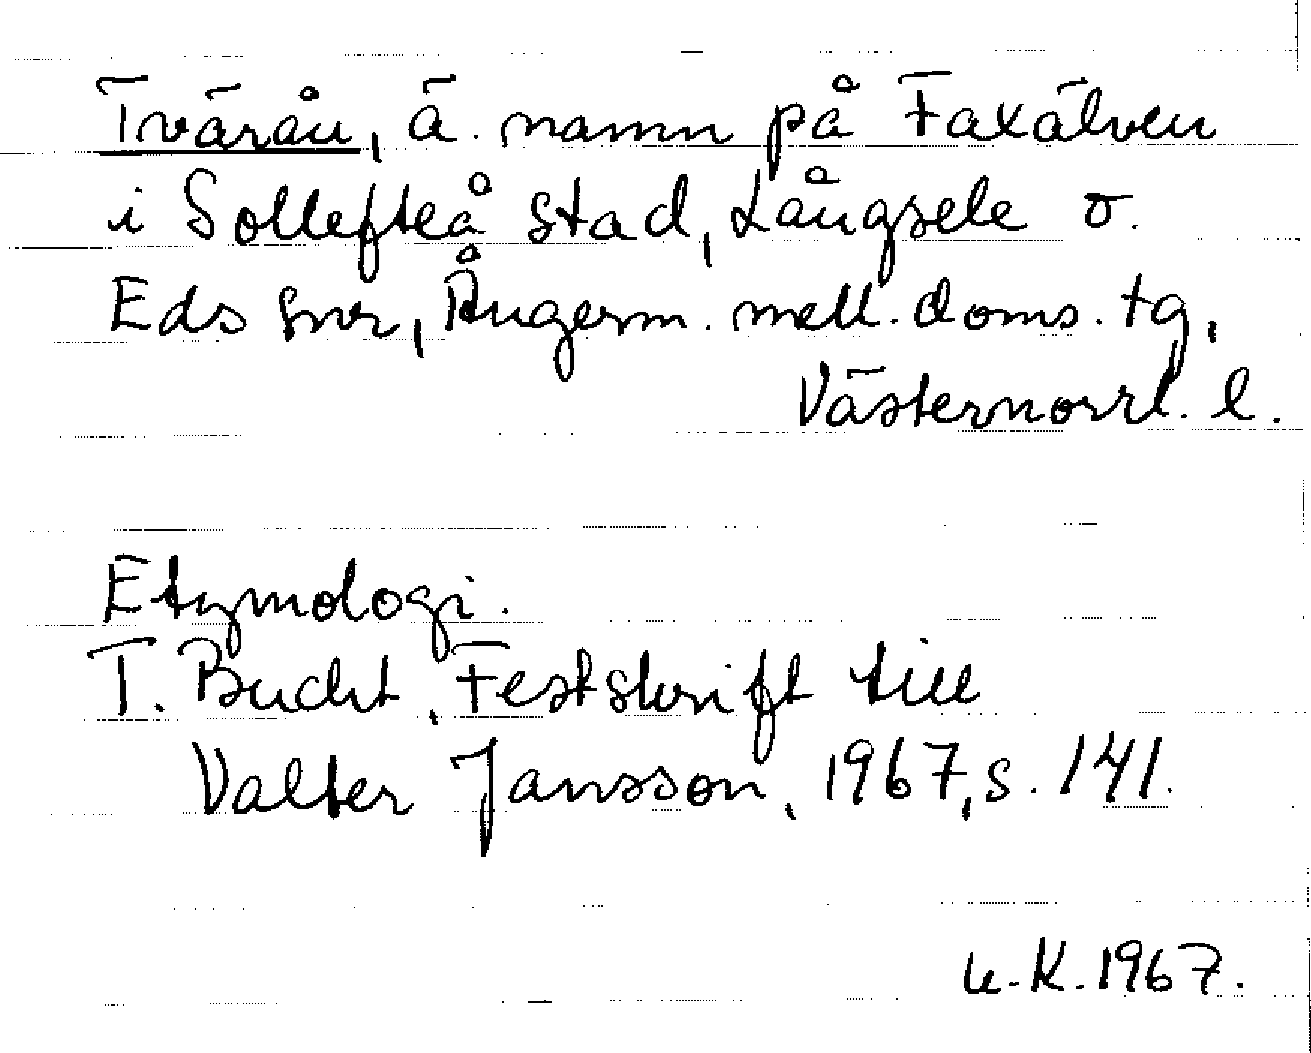 Tvärån, ä. namn på Faxälven
i Sollefteå stad, Långsele o.
Eds snr, Ångerm. mell. doms. tg,
Västernorrl. l.
Etymologi.
T. Bucht, Festskrift till
Valter Jansson, 1967, s. 141.
u.K. 1967.